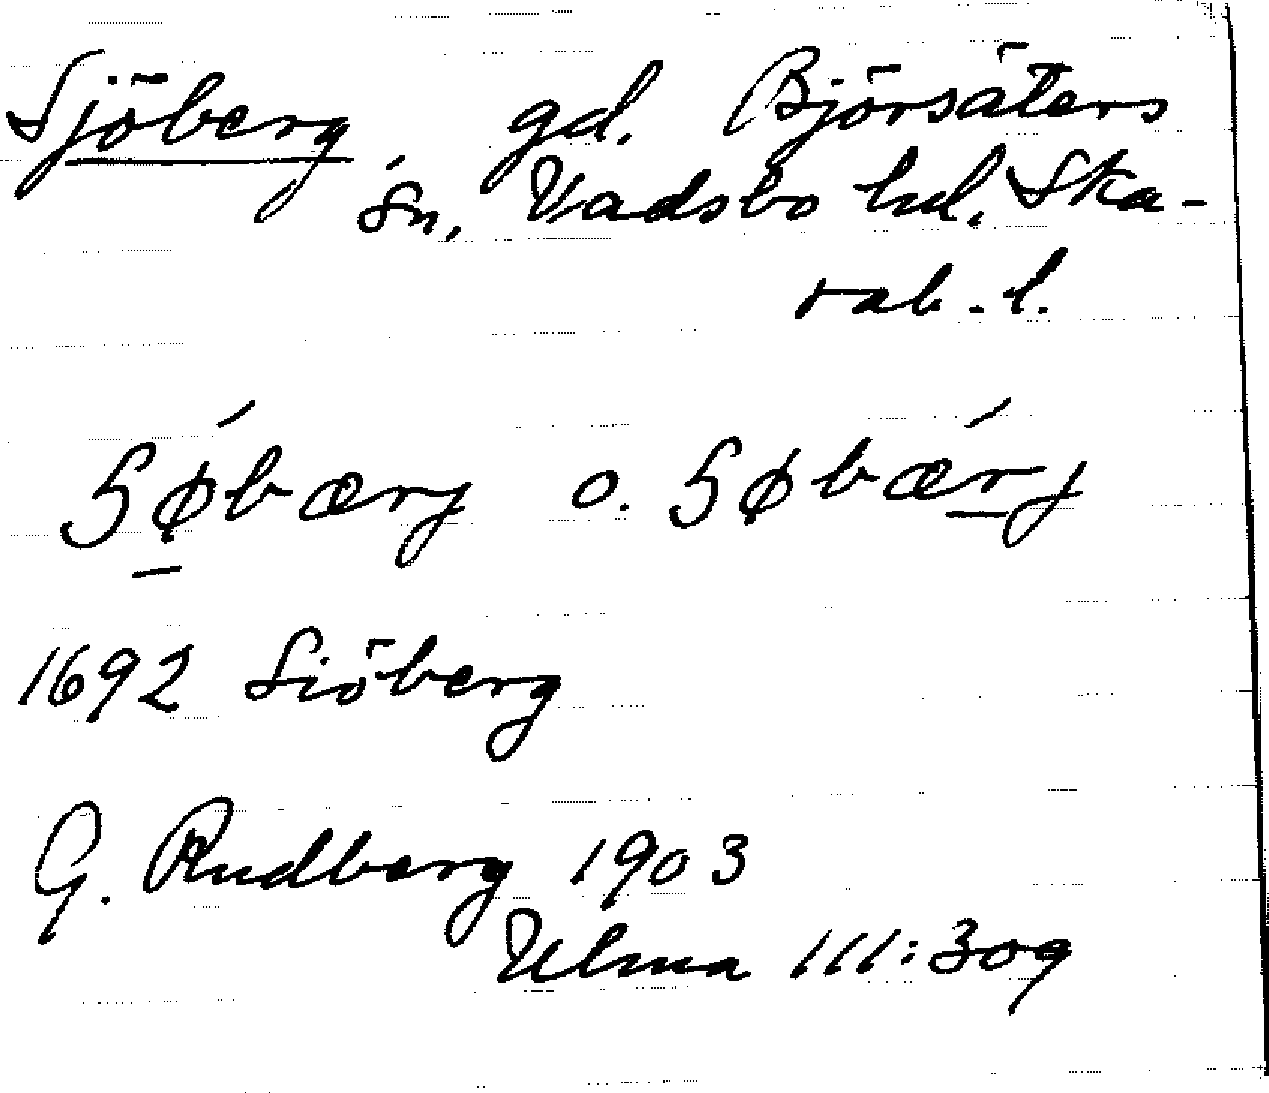 Sjöberg, gd. Björsäters
sn, Vadsbo hd. Ska-
rab. l.
Sǿ̲bærj o. Søbǽr̲j
1692 Siöberg
G. Rudberg 1903
Ulma 111:309